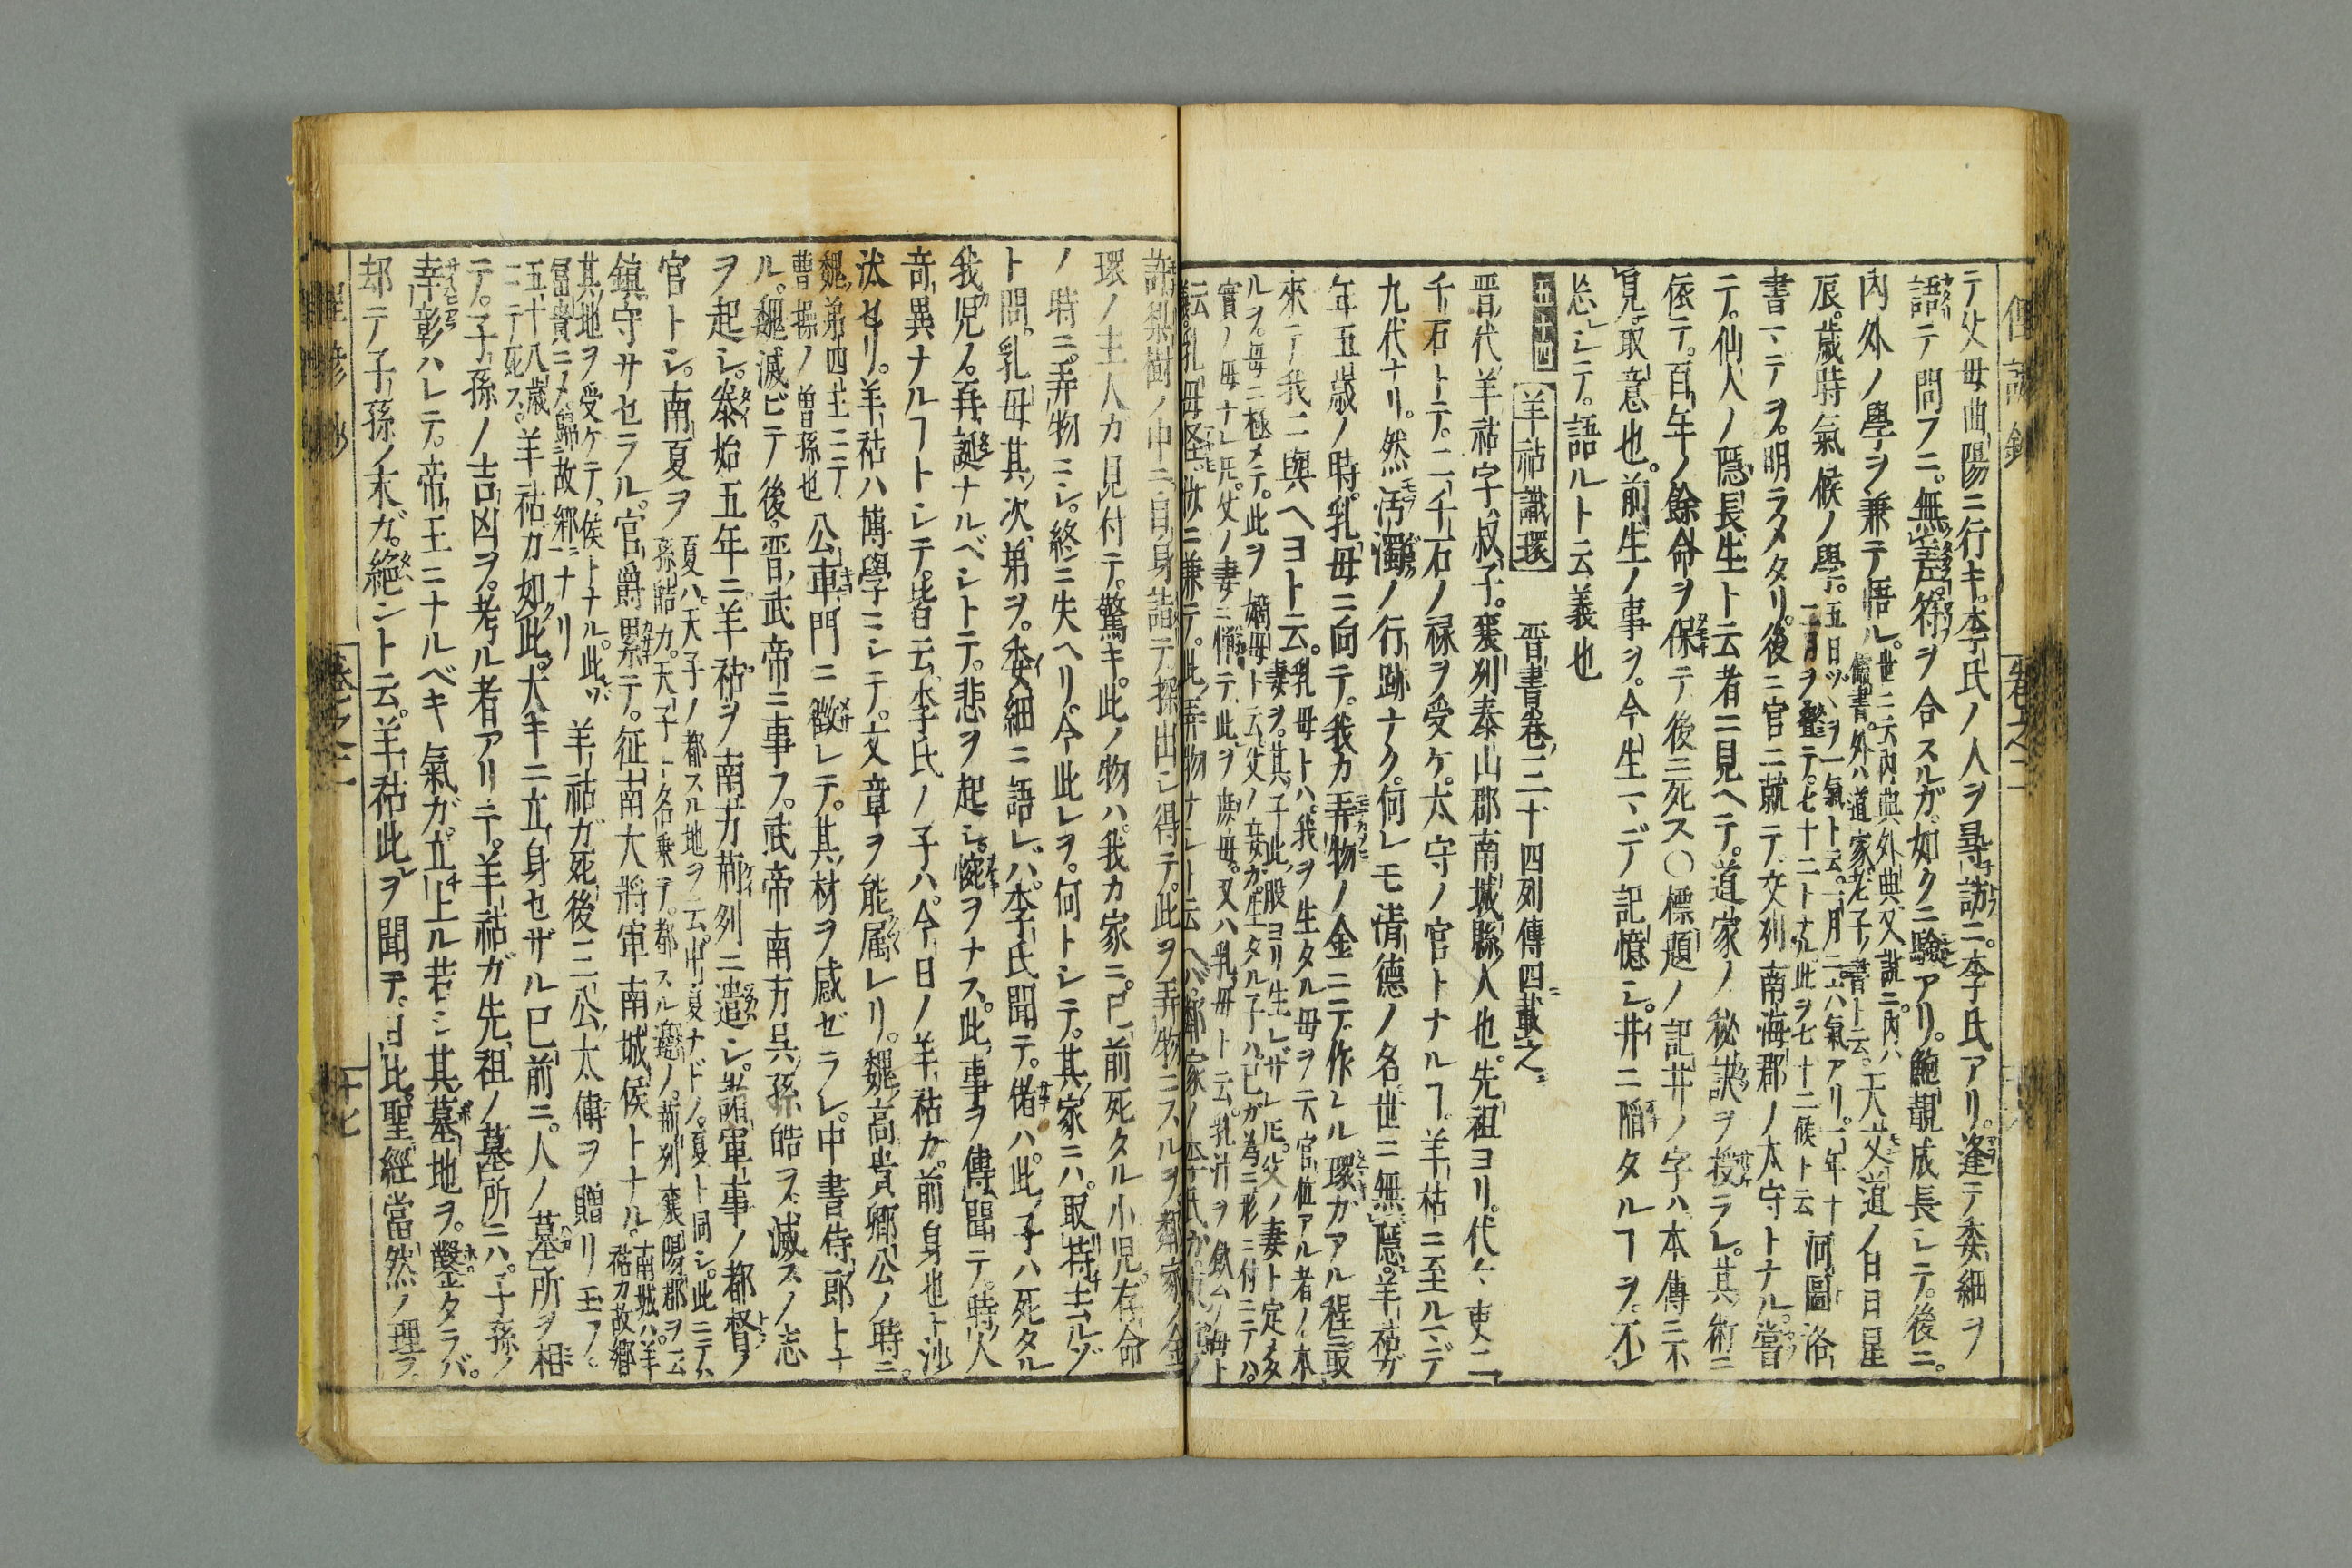 テ父母曲陽ニ行キ。李氏ノ人ヲ尋訪ニ。李氏アリ。逢テ委細ヲ
語テ問フニ。無差。符ヲ合スルガ。如クニ驗アリ。鮑靚成長シテ。後ニ。
内外ノ學ヲ兼テ悟ル。世ニ云内典外典。又説ニ。内ハ儒書。外ハ道家。老子ノ書ト云。天文道ノ日月星
辰。歳時氣候ノ學。五日ヅヽヲ一氣ト云。一月ニ。六氣アリ。一年十二月ヲ盤テ。七十二トナル。此ヲ七十二候ト云河圖洛
書マテヲ。明ラメタリ。後ニ官ニ就テ。交州南海郡ノ太守トナル。當
ニテ。仙人ノ隱長生ト云者ニ見ヘテ。道家ノ秘訣ヲ授ラレ。其術ニ
依テ。百年ノ餘命ヲ保テ後ニ死ス〇標題ノ記井ノ字ハ本傳ニ不
見。取意也。前生ノ事ヲ。今生マデ記憶シ。井ニ陷タルヿヲ。不
忘シテ。語ルト云義也
五十四 羊祜識環 晋書卷三十四列傳四載之
晋代羊祜字叔子。泰山郡南城縣人也。先祖ヨリ。代々吏二
千石トテ。二千石ノ禄ヲ受ケ。太守ノ官トナルヿ。羊祜ニ至ルマデ
九代ナリ。然汚濁ノ行跡ナク。何レモ清德ノ名。世ニ無隱。羊祜ガ
年五歳ノ時。乳母ニ向テ。我カ弄物ノ金ニテ作レル環ガアル程ニ取
來テ我ニ與ヘヨト云。乳母トハ。我ヲ生タル母ヲ云。官位アル者ノ本妻ヲ。其子此腹ヨリ生レザレ𪜈。父ノ妻ト定タ
ルヲ。母ニ極メテ。此ヲ嫡母ト云。父ノ妾ガ。生タル子ハ。己ガ為ニ形ニ付ニテハ。實ノ母ナレ𪜈。父ノ妻ニ憚テ。此ヲ庶母。又ハ乳母ト云。乳汁ヲ飲ムノ母ト
云乳母怪。汝ニ兼テ。此弄物ナシト云ヘバ。鄰家ノ李氏カ
桑樹ノ中ニ自身詣テ探出シ得テ。此ヲ弄物ニスルヲ。鄰家ノ金
環ノ主人カ見付テ。驚キ。此ノ物ハ。我カ家ニ。已前死タル小児。存命
ノ時ニ。弄物ニシ。終ニ失ヘリ。今此レヲ。何トシテ。其家ニハ。取持去ルゾ
ト問。乳母其次弟ヲ。委細ニ語レバ。李氏聞テ。偖ハ。此子ハ死タル
我児ノ。再誕ナルベシトテ。悲ヲ起シ。惋ヲナス。此事ヲ傳聞テ。時人
奇異ナルヿトシテ。皆云。李氏ノ子ハ。今日ノ羊祜ガ。前身也ト沙
汰セリ。羊祜ハ博學ニシテ。文章ヲ能属レリ。魏高貴郷公ノ時ニ。
魏第四主ニテ曹操ノ曽孫也公車門ニ徴レテ。其材ヲ感ゼラレ。中書侍郎トナ
ル。魏滅ビテ後。晋武帝ニ事フ。武帝南方呉孫皓ヲ滅スノ志
ヲ起シ。泰始五年ニ羊祜ヲ南方荊州ニ遣シ。諸軍事ノ都督ノ
官トシ。南夏ヲ夏ハ。天子ノ都スル地ヲ云。中夏ナドノ。夏ト同シ。此ニテハ孫皓カ。天子ト名乗ヲ。都スル邊ノ。荊州襄陽郡ヲ云
鎮守サセラル。官爵累テ。征南大將軍南城侯トナル。南城ハ。羊祜カ故郷
其地ヲ受ケテ。侯トナル。此ソ冨貴ニメ。歸故郷ニナリ羊祜ガ死後ニ公太傅ヲ贈リ玉フ。
五十八歳ニテ死ス。羊祜カ如此。大キニ立身セザル已前ニ。人ノ墓所ヲ相
テ。子孫ノ吉凶ヲ。考ル者アリテ。羊祜ガ先祖ノ墓所ニハ。子孫ノ
幸彰ハレテ。帝王ニナルベキ氣ガ。立上ル若シ其墓地ヲ。鑿タラバ。
却テ子孫ノ末ガ。絶ント云。羊祜此ヲ聞テ。曰。比聖經當然ノ理ヲ。
卷之二
十七